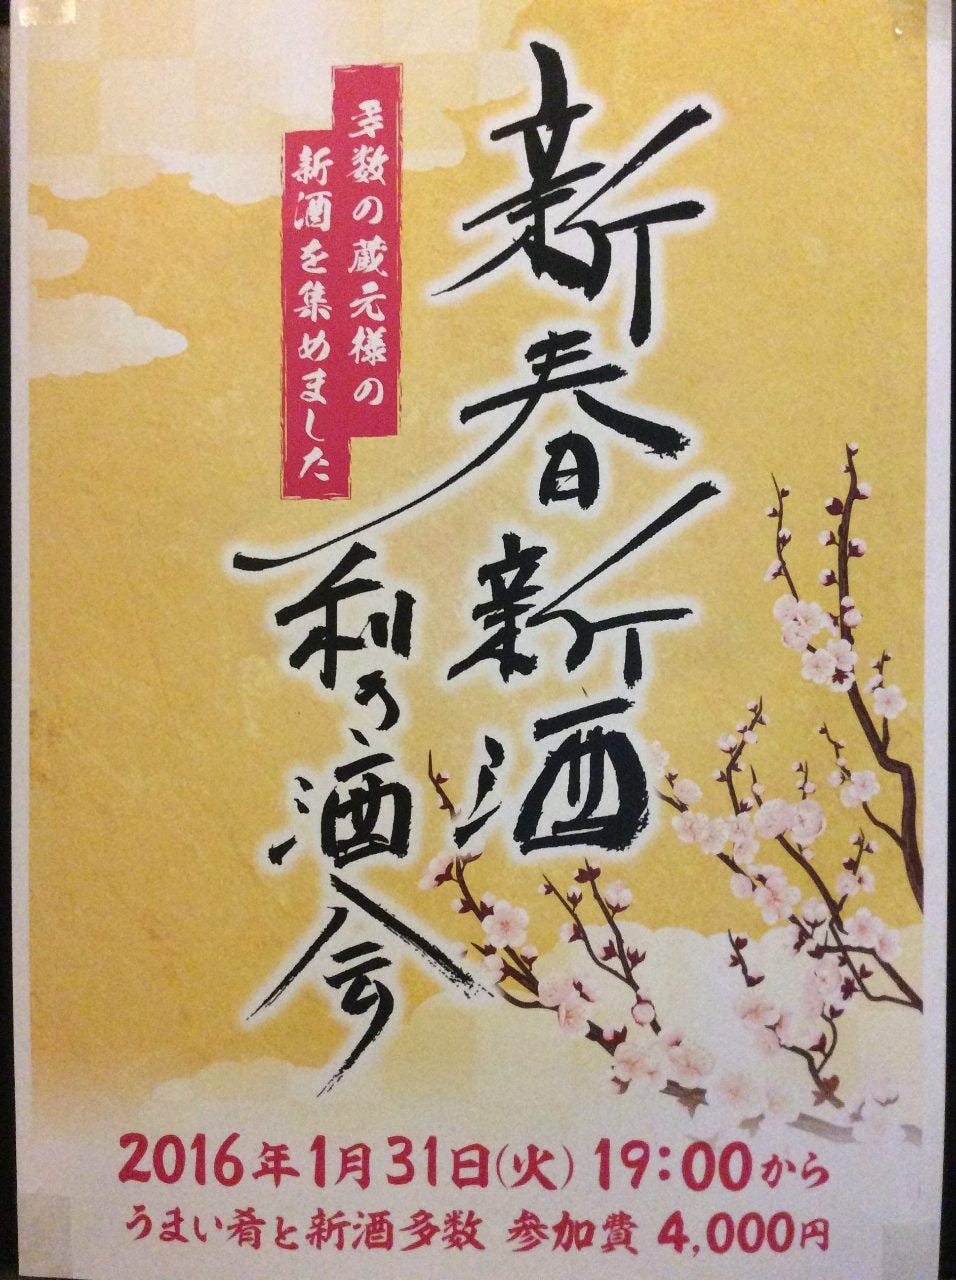 新春新酒
利き酒会
多数の蔵元様の
新酒を集めました
2016年1月31日(火) 19:00から
うまい肴と新酒多数 参加費 4,000円